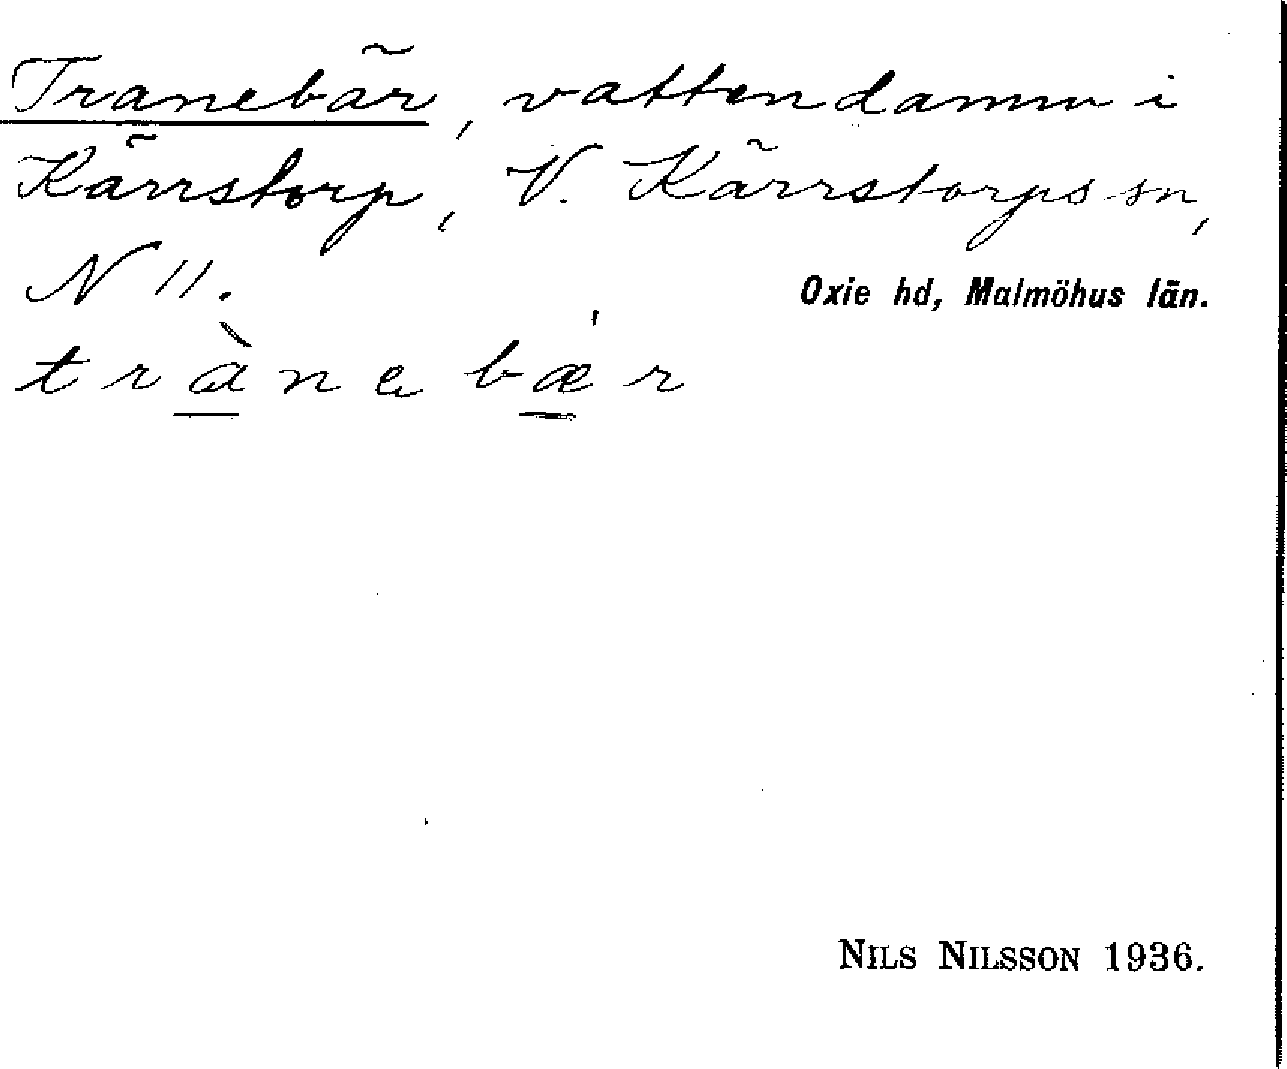 Tranebär, vattendamm i
Kärrstorp, V. Kärrstorps sn,
N 11.
Oxie hd, Malmöhus län.
tràne bǽr
NILS NILSSON 1936.